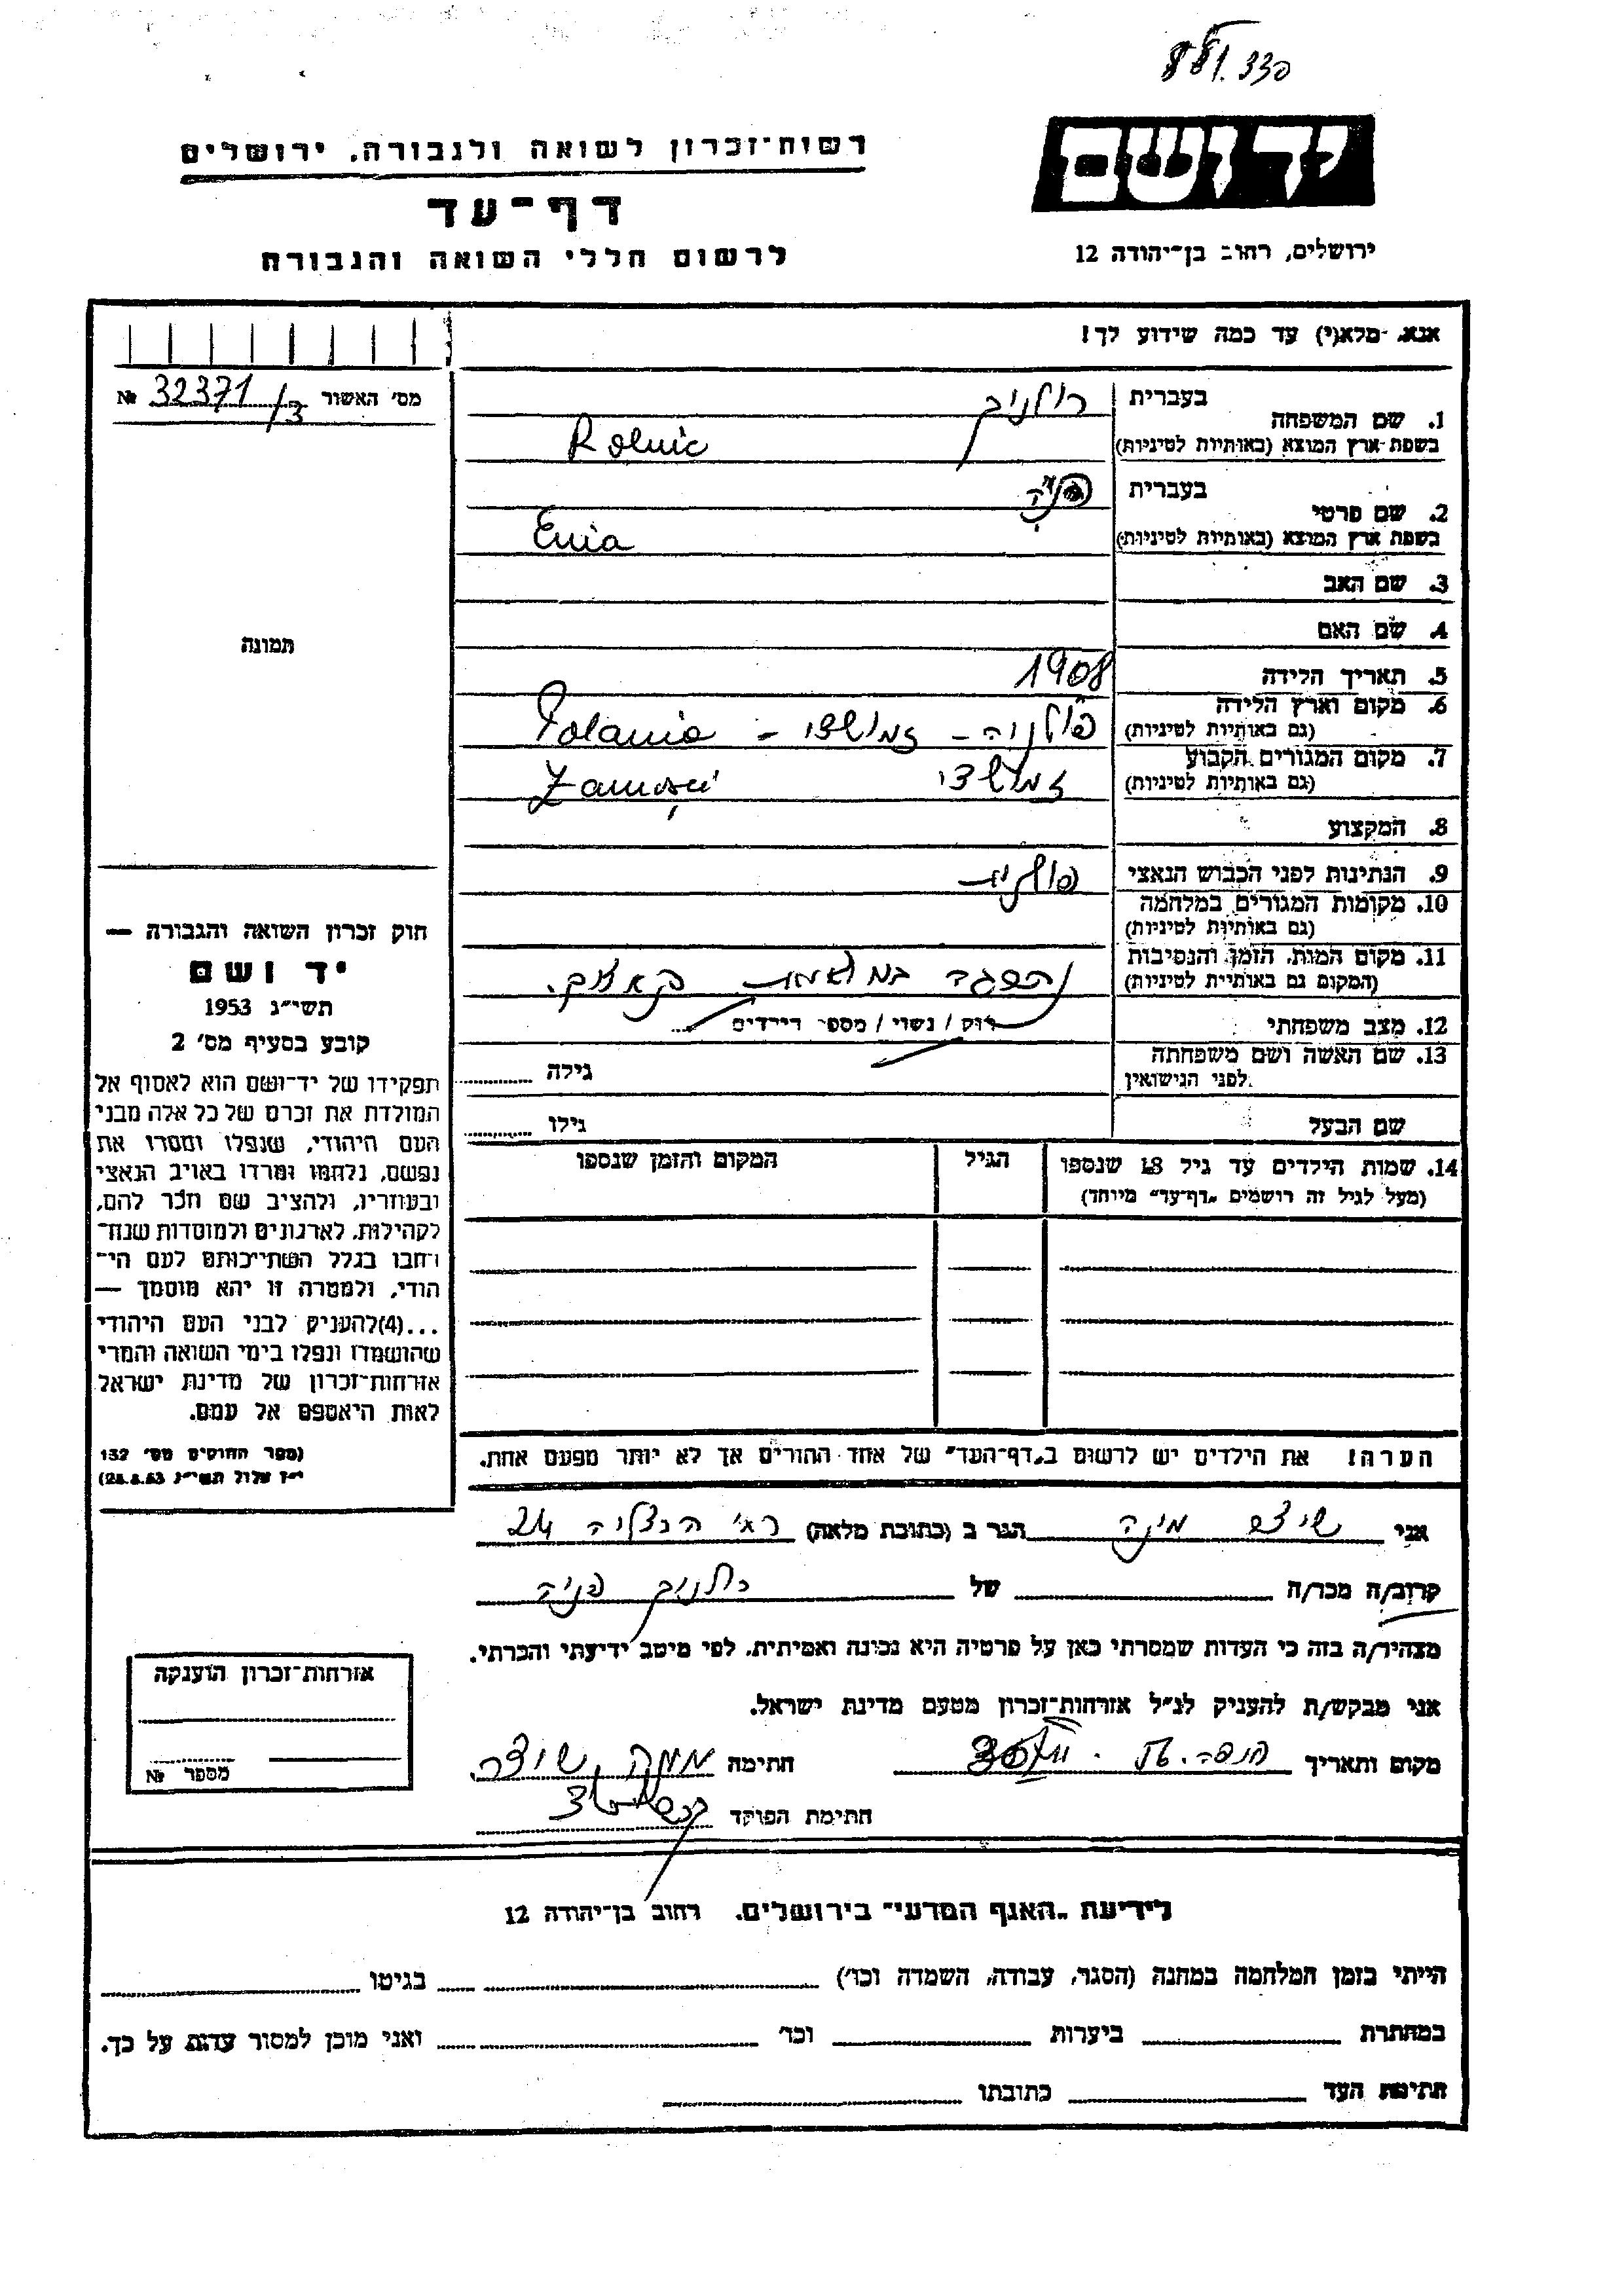 יד ושם
רשות־זכרון לשואה ולגבורה, ירושלים
דף־עד
לרשום חללי השואה והגבורה
ירושלים, רחוב בן־יהודה 12
אנא, מלא(י) עד כמה שידוע לך!
מס׳ האשור № 32371/3
תמונה
1. שם המשפחה בעברית רולניק
בשפת ארץ המוצא (באותיות לטיניות) Rolnic
2. שם פרטי בעברית
בשפת ארץ המוצא (באותיות לטיניות) Enia
3. שם האב
4. שם האם
5. תאריך הלידה 1908
6. מקום וארץ הלידה
(גם באותיות לטיניות) פולניה – זמושץ׳ – Polania
7. מקום המגורים הקבוע
(גם באותיות לטיניות) Zamość
8. המקצוע
9. הנתינות לפני הכבוש הנאצי פולנית
10. מקומות המגורים במלחמה
(גם באותיות לטיניות)
11. מקום המות, הזמן והנסיבות
(המקום גם באותיות לטיניות)
12. מצב משפחתי רוק / נשוי / מספר הילדים
13. שם האשה ושם משפחתה
לפני הנישואין גילה
שם הבעל גילו
14. שמות הילדים עד גיל 18 שנספו הגיל המקום והזמן שנספו
(מעל לגיל זה רושמים "דף־עד" מיוחד)
הערה! את הילדים יש לרשום ב"דף־העד" של אחד ההורים אך לא יותר מפעם אחת.
חוק זכרון השואה והגבורה —
יד ושם
תשי״ג 1953
קובע בסעיף מס׳ 2
תפקידו של יד־ושם הוא לאסוף אל
המולדת את זכרם של כל אלה מבני
העם היהודי, שנפלו ומסרו את
נפשם, נלחמו ומרדו באויב הנאצי
ובעוזריו, ולהציב שם וזכר להם,
לקהילות, לארגונים ולמוסדות שנח־
רחבו בגלל השתייכותם לעם הי־
הודי, ולמטרה זו יהא מוסמך —
...(4)להעניק לבני העם היהודי
שהושמדו ונפלו בימי השואה והמרי
אזרחות־זכרון של מדינת ישראל
לאות היאספם אל עמם.
(ספר החוקים מס׳ 132
י״ז אלול תשי״ג 28.8.53)
אני מינה הגר ב (כתובת מלאה) 24
קרוב/ה מכר/ה של רולניק פניה
מצהיר/ה בזה כי העדות שמסרתי כאן על פרטיה היא נכונה ואמיתית, לפי מיטב ידיעתי והכרתי.
אני מבקש/ת להעניק לנ״ל אזרחות־זכרון מטעם מדינת ישראל.
מקום ותאריך חתימה
חתימת הפוקד
אזרחות־זכרון הוענקה
מספר №
לידיעת "האגף המדעי" בירושלים, רחוב בן־יהודה 12
הייתי בזמן המלחמה במחנה (הסגר, עבודה, השמדה וכו׳) בגיטו
במחתרת ביערות וכו׳ ואני מוכן למסור עדות על כך.
חתימת העד כתובתו